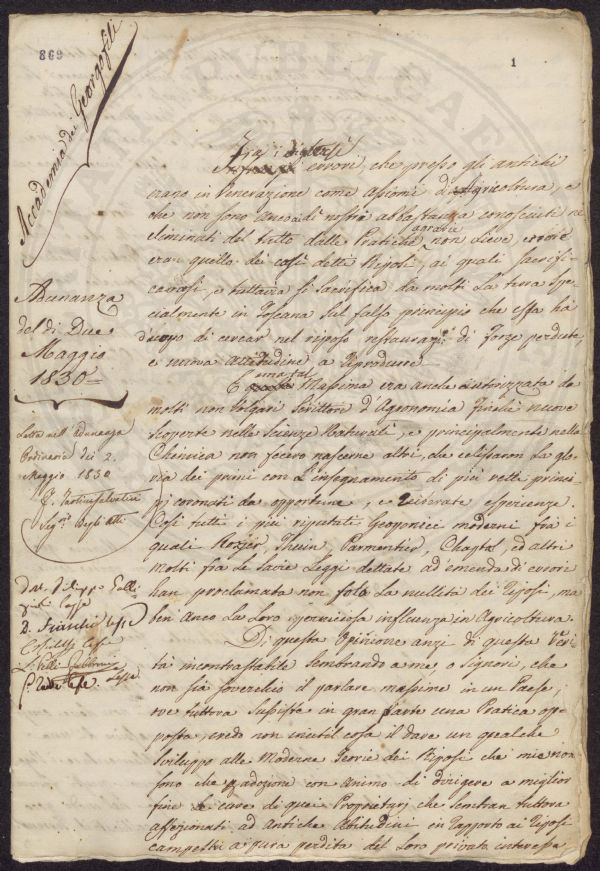 869
1
Accademia dei Georgofili
Adunanza
del di Due
Maggio
1830
Letta nell'adunanza
Ordinaria dei 2.
Maggio 1830
Seg.rio degli Atti
D. Franchi
Fra i diversi
errori, che presso gli antichi
erano in Venerazione come assiomi di Agricoltura, e
che non sono ancora di nostri abbastanza conosciuti né
eliminati del tutto dalle Pratiche agrarie non lieve errore
era quello dei così detti Riposi, ai quali sacrifi-
cavasi, e tuttavia si sacrifica da molti la terra spe-
cialmente in Toscana sul falso principio che essa ha
d'uopo di cercar nel riposo restauraz.e di forze perdute,
e nuova attitudine a riprodurre.
E una tal Massima era anche autorizzata da
molti non volgari Scrittori d'Agronomia finché nuove
scoperte nelle Scienze Naturali, e principalmente nella
Chimica non fecero nascerne altri, che eclissaron la glo-
ria dei primi con l'insegnamento di più retti princi-
pj coronati da opportune, e reiterate esperienze.
Così tutti i più riputati Geoponici moderni fra i
quali Rozier, Thuin, Parmentier, Chaptal, ed altri
molti fra le savie Leggi dettate ad emenda di errori
han proclamata non solo la nullità dei riposi, ma
ben anco la loro perniciosa influenza in Agricoltura.
Di questa Opinione anzi di questa Veri-
tà incontrastabile sembrando a me, o Signori, che
non sia soverchio il parlare massime in un Paese,
ove tuttora sussiste in gran parte una Pratica op-
posta, credo non inutil cosa il dare un qualche
Sviluppo alle Moderne Teorie dei Riposi che mie non
sono che per adozione con animo di dirigere a miglior
fine le cure di quei Proprietarj che sembran tuttora
affezionati ad Antiche Abitudini in rapporto ai Riposi
campestri a pura perdita del loro privato interesse